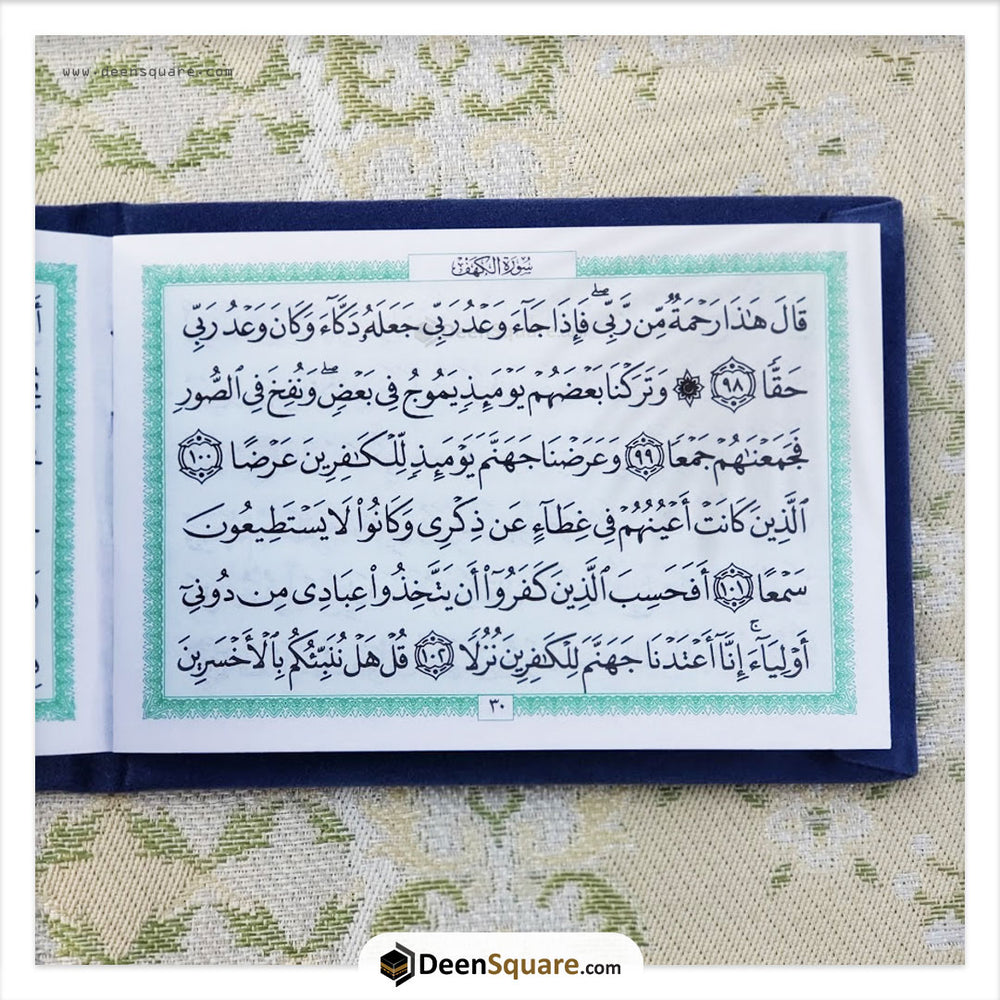 www.deensquare.com
سُورَةُ الكَهْفِ
قَالَ هَٰذَا رَحْمَةٌ مِّن رَّبِّي ۖ فَإِذَا جَآءَ وَعْدُ رَبِّي جَعَلَهُۥ دَكَّآءَ وَكَانَ وَعْدُ رَبِّي
حَقًّا ٩٨ ۞ وَتَرَكْنَا بَعْضَهُمْ يَوْمَئِذٍ يَمُوجُ فِي بَعْضٍ ۖ وَنُفِخَ فِي ٱلصُّورِ
فَجَمَعْنَٰهُمْ جَمْعًا ٩٩ وَعَرَضْنَا جَهَنَّمَ يَوْمَئِذٍ لِّلْكَٰفِرِينَ عَرْضًا ١٠٠
ٱلَّذِينَ كَانَتْ أَعْيُنُهُمْ فِي غِطَآءٍ عَن ذِكْرِي وَكَانُوا۟ لَا يَسْتَطِيعُونَ
سَمْعًا ١٠١ أَفَحَسِبَ ٱلَّذِينَ كَفَرُوٓا۟ أَن يَتَّخِذُوا۟ عِبَادِي مِن دُونِيٓ
أَوْلِيَآءَ ۚ إِنَّآ أَعْتَدْنَا جَهَنَّمَ لِلْكَٰفِرِينَ نُزُلًا ١٠٢ قُلْ هَلْ نُنَبِّئُكُم بِٱلْأَخْسَرِينَ
٣٠
DeenSquare.com